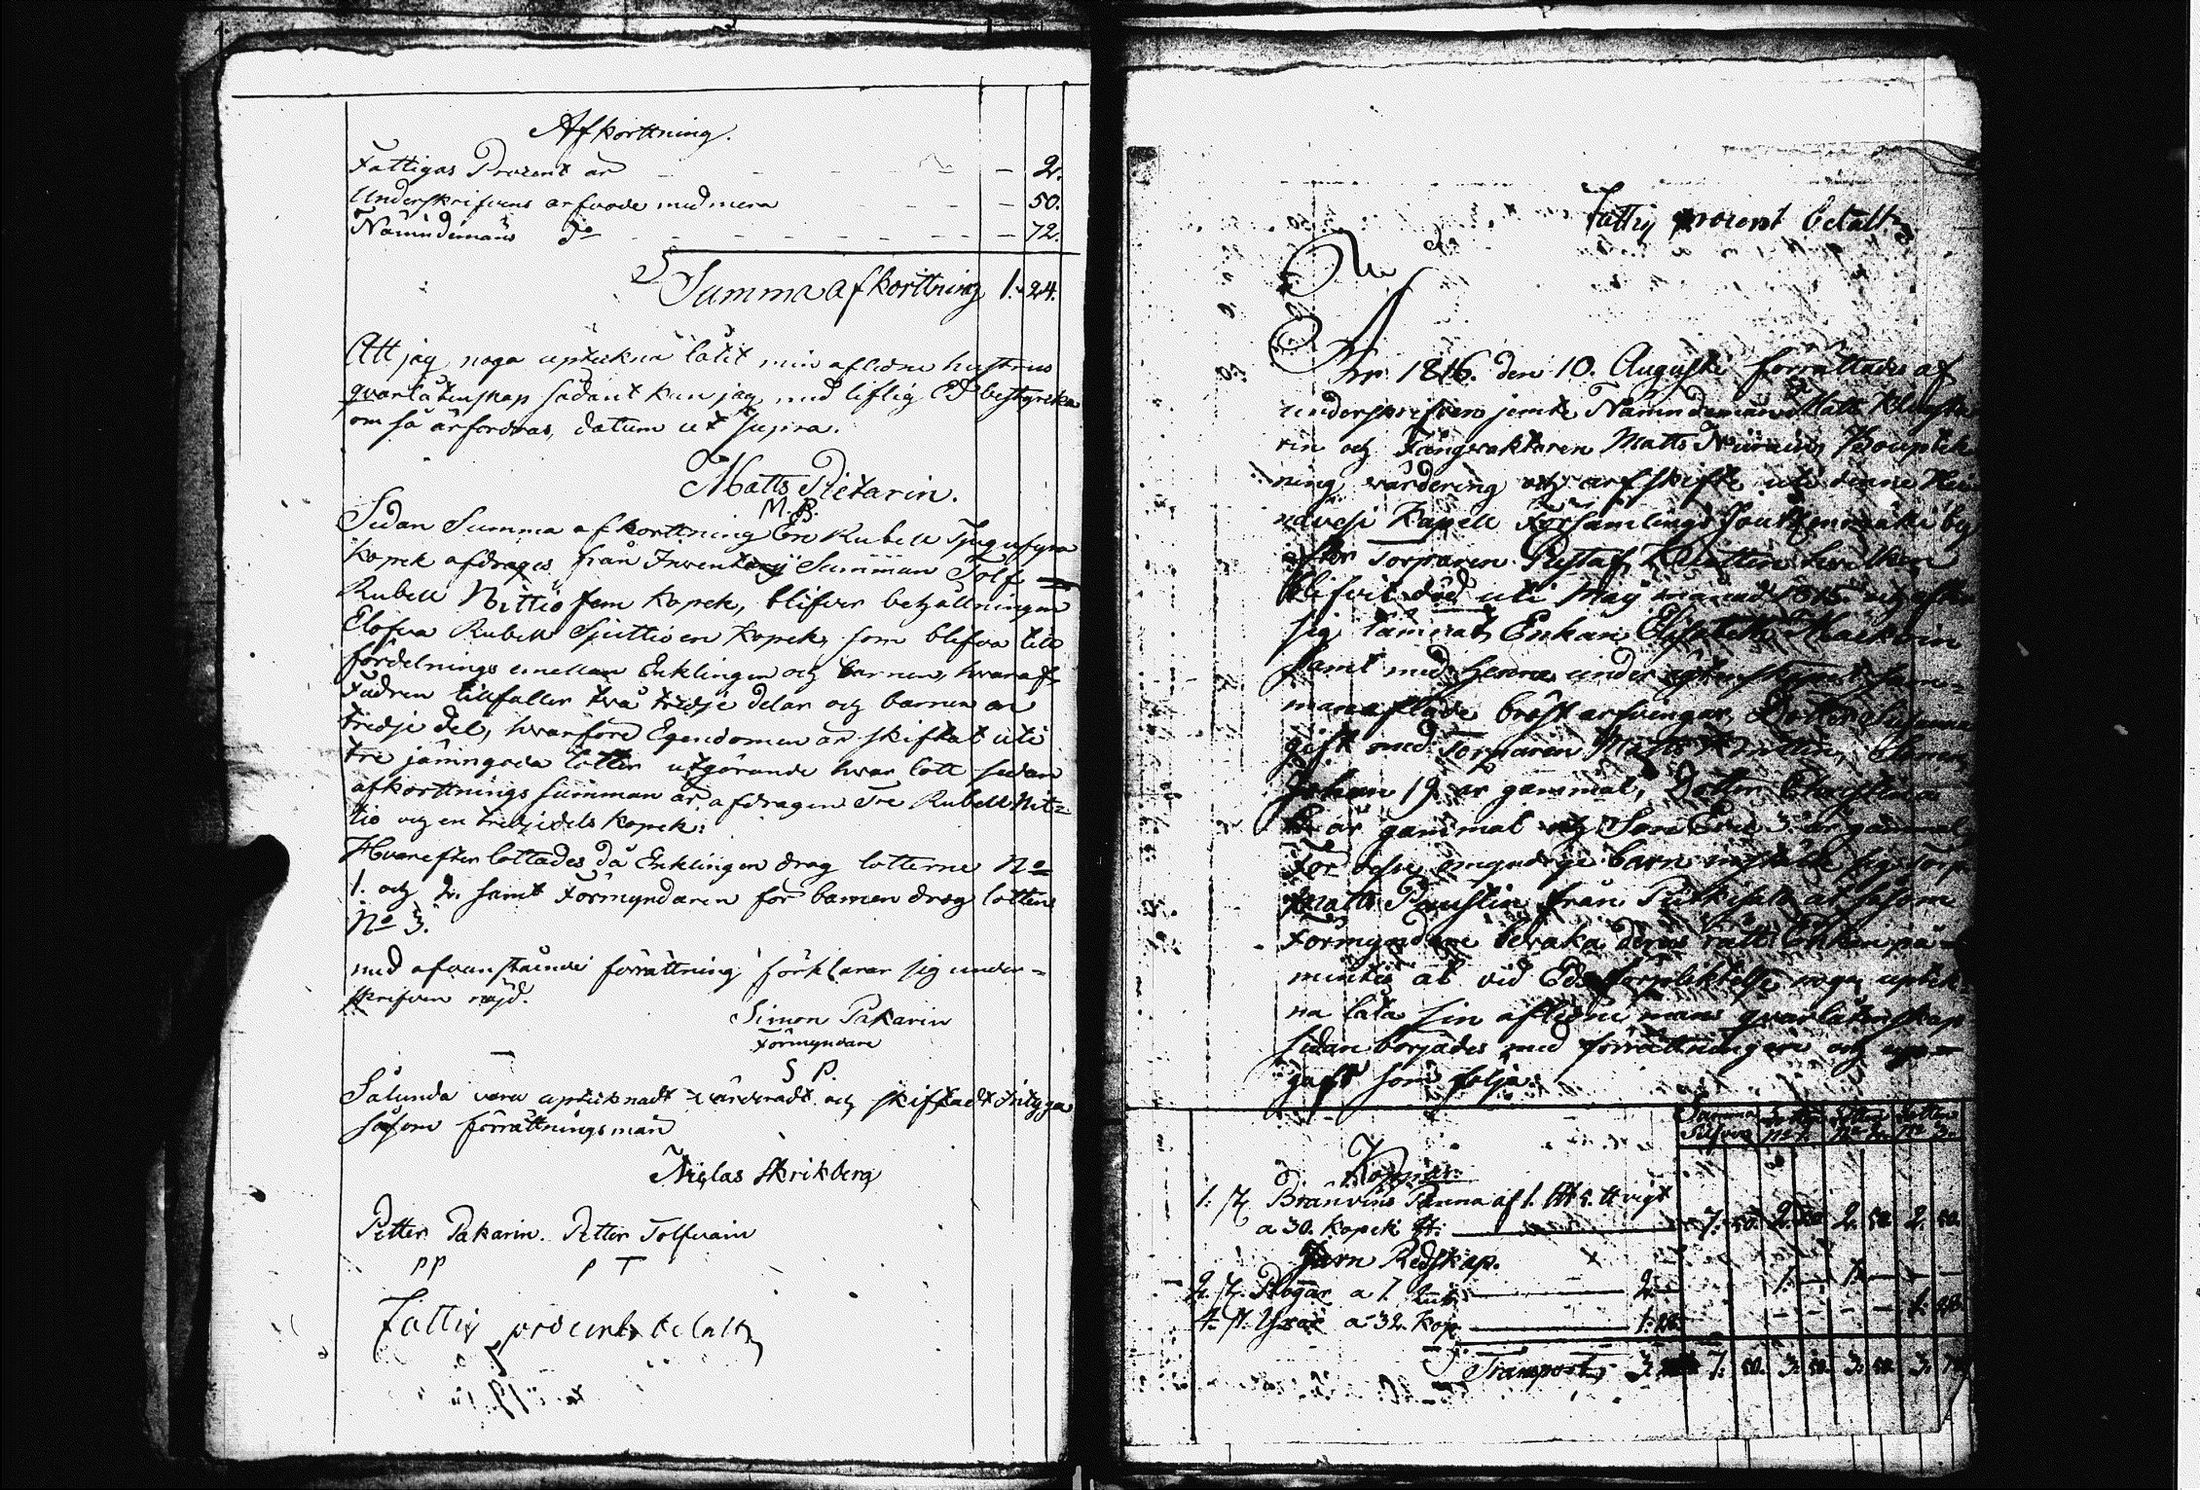 Afkorttning.
Fattigas Procent är - 2.
Underskrifvens arfvode med mera - 50.
Nämndemäns do - 72.
Summa afkorttning 1. 24.
Att jag noga uptekna låtit min aflidne hustrus
qvarlåtenskap sådant kan jag med liflig Ed bestyrcka
om så ärfordras, datum ut supra.
Matts Pietarin.
M. P.
Sedan Summa afkorttning En Rubell Tjugufyra
kopek afdrages från Inventarij Summan Tolf
Rubell Nittio fem kopek, blifver behållningen
Elofva Rubell Sjuttio en kopek, som blifva till
fördelnings emellan Enklingen och barnen, hvaraf
Fadren tillfaller två tredje delar och barnen en
tredje del, hvarföre Egendomen är skiftat uti
tre jämngoda lotter utgörande hvar lott sedan
afkorttnings summan är afdragen Tre Rubell Nit=
tio och en tredjedels kopek:
Hvarefter lottades då Enklingen drog lotterne No
1. och 2. samt Förmyndaren för barnen drog lotten
No 3.
med ofvanstående förrättning förklarar sig under=
skrifven nöjd.
Simon Pakarin
Förmyndare
S P.
Sålunda vara upteknadt värderadt och skiftadt intyga
såsom förrättningsmän
Niclas Skrikberg
Petter Pakarin. Petter Tolfvain
P P P T
Fattig procent betalt
Fattig procent betalt
År 1816. den 10. Augusti förrättades af
underskrifven jemte Nämndeman Matts
rin och Fångvaktaren Matts Bouptek
ning värdering och arfskifte uti denne
Kapell Församlings by
efter Torparen Gustaf hvilken
blifvit död uti Maj månad
sig lämnat Enkan Elisabeth
samt med henne under ägtenskapet sam=
manaflade bröst arfvingar, Dotter Susanna
gift med Torparen Matts Sonen
Johan 19 år gammal, Dotter Christina
år gammal och Son Eric 3 år gammal
För desse omyndige barn
Matts från at såsom
Förmyndare bevaka deras rätt Enkan på
mintes at vid Eds förpliktelse noga uptek
na låta sin aflidne mans qvarlåtenskap
sedan börjades med förrättningen och upp=
gaft som följer:
Summa Lotten Lotten Lotten
Silfver No 1. No 2. No 3.
Koppar.
1. st. Bränvins Panna af 1. 5. vigt
a 30. kopek 7. 50. 2. 50 2. 50. 2. 50.
Järn Redskap.
2. st. Plogar a 1. Rub 2. 1. 1.
4. st. Yxar a 32. kop 1. 28 1. 28.
Transport 3. 7. 50. 3. 50. 3. 50. 3. 78